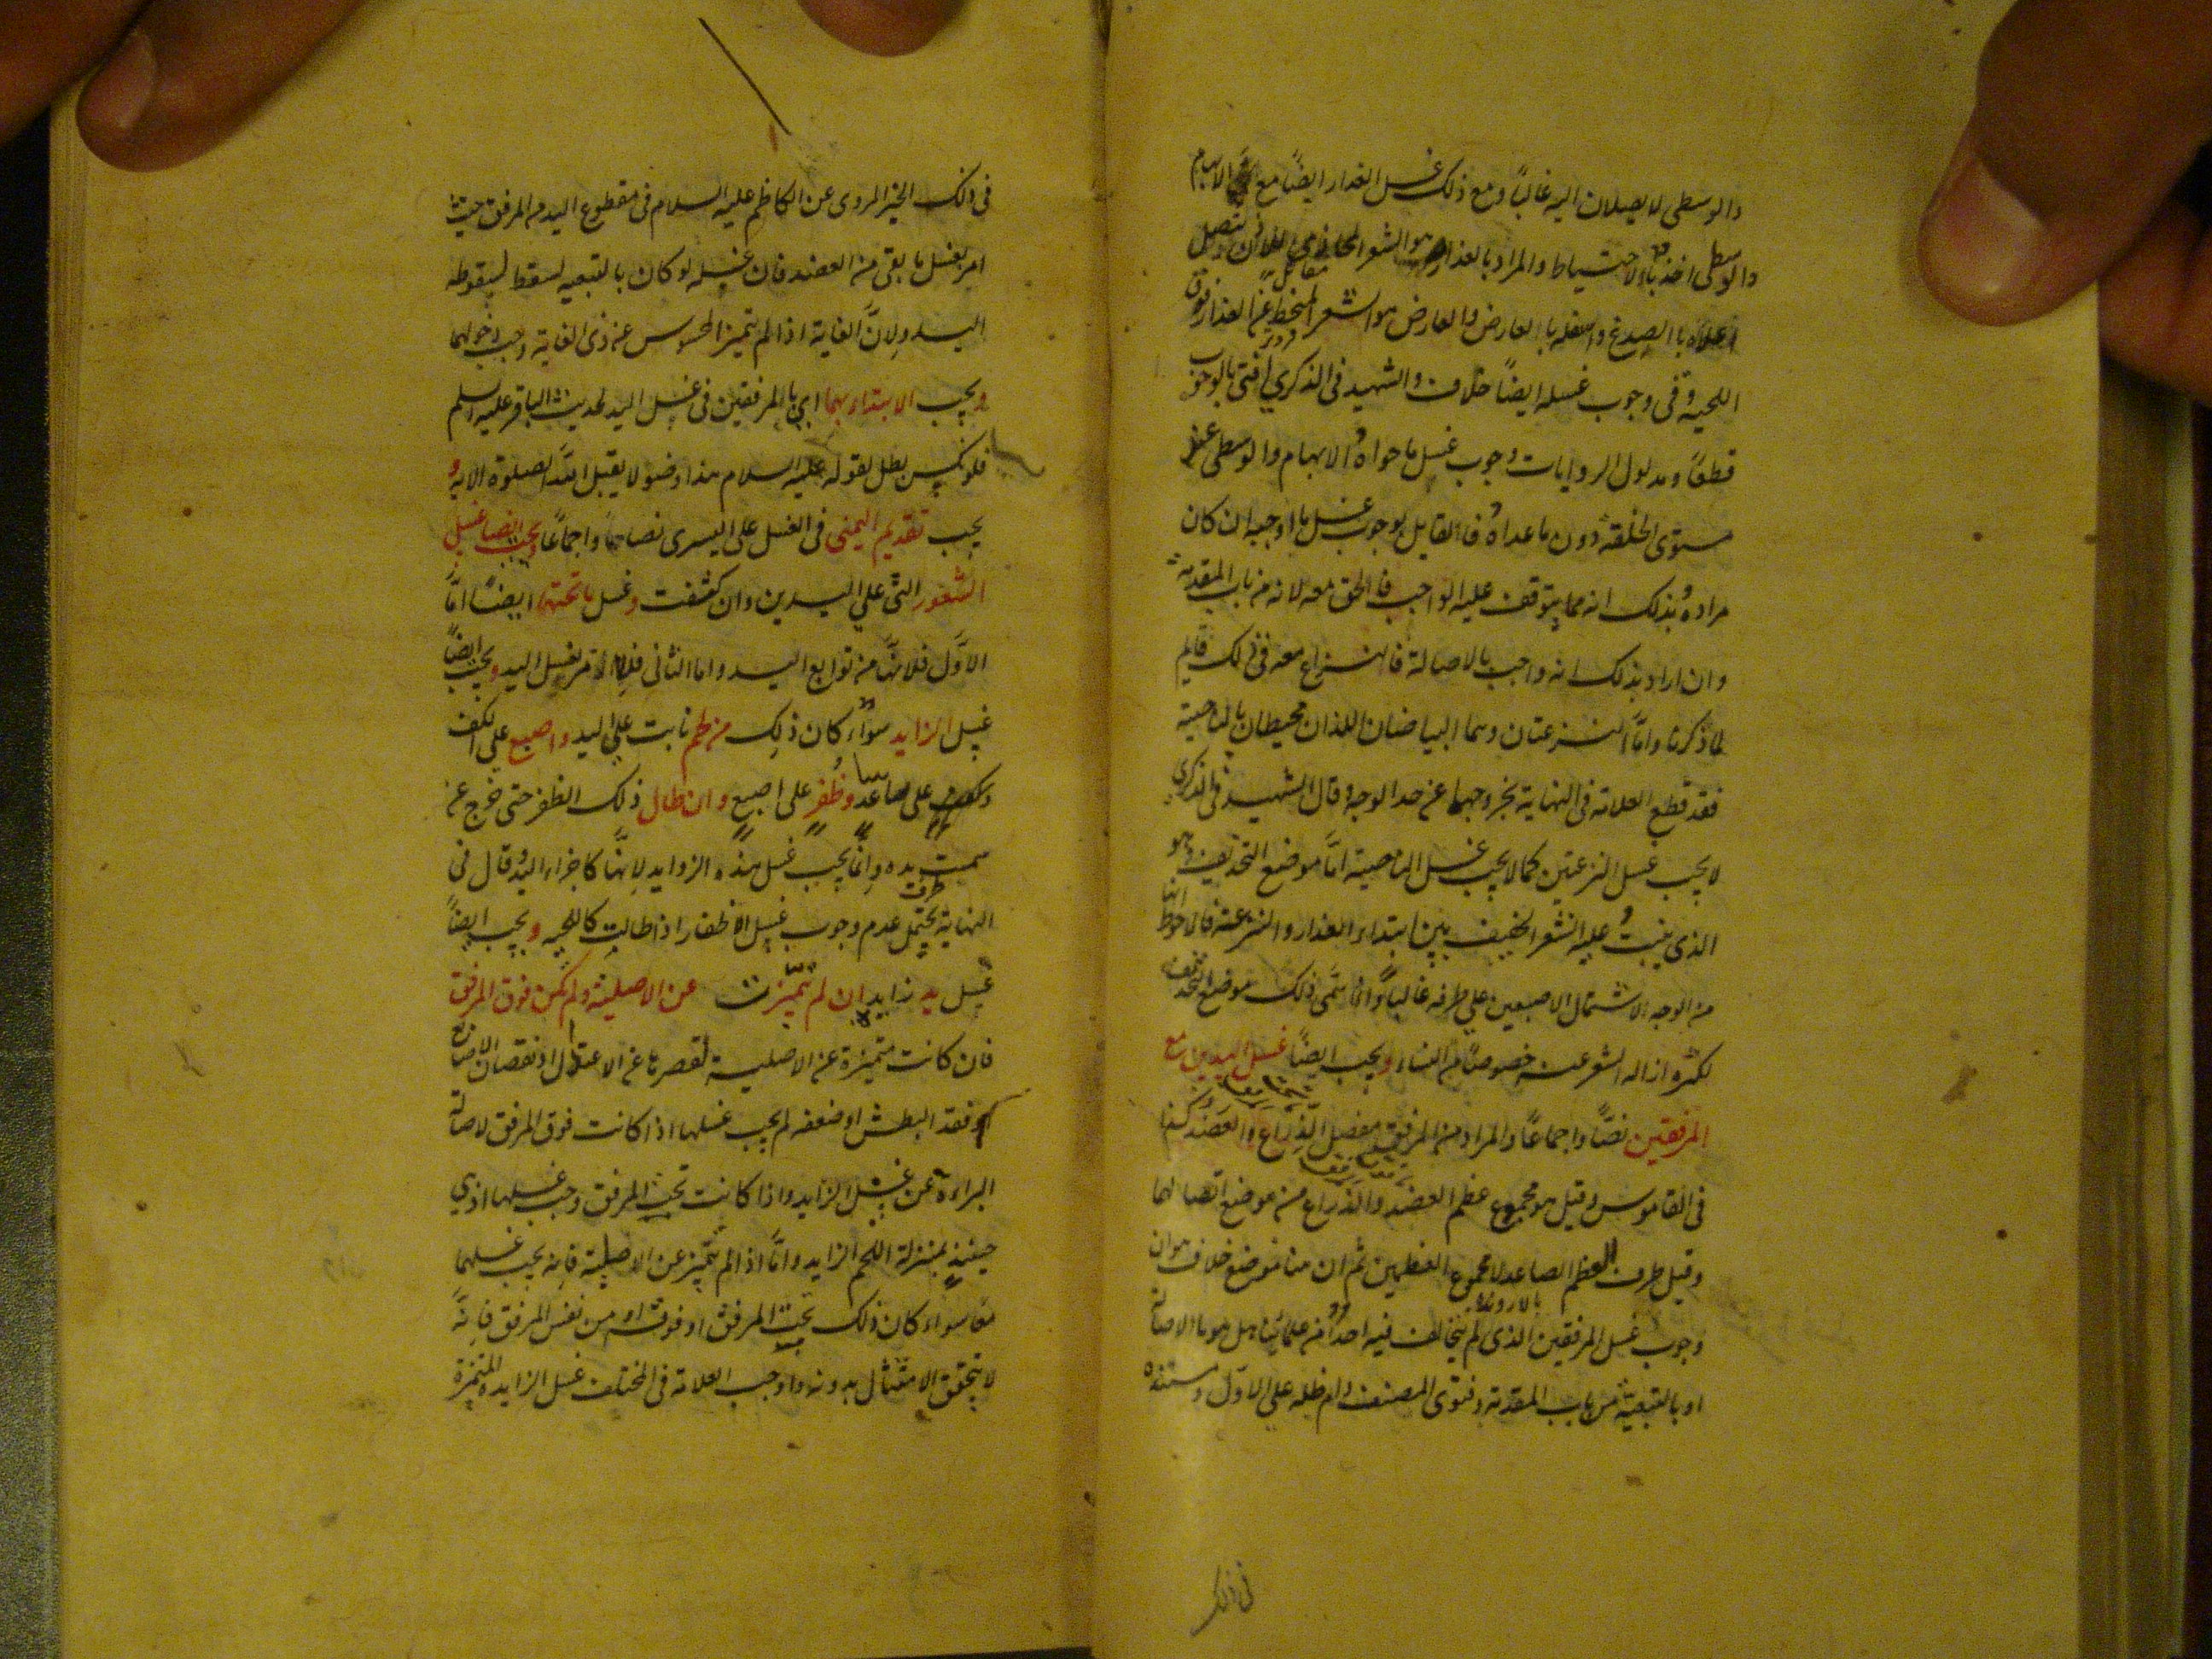 والوسطى لا يصلان اليه غالباً ومع ذلك غسل العذار ايضاً مع الابهام
والوسطى اخذ بالاحتياط والمراد بالعذار هو الشعر المحاذي للاذن يتصل
اعلاه بالصدغ واسفله بالعارض والعارض هو الشعر المنحط عن العذار فوق
اللحية وفى وجوب غسله ايضاً خلاف والشهيد فى الذكرى افتى بالوجوب
قطعاً ومدلول الروايات وجوب غسل ما حواه الابهام والوسطى عند
مستوى الخلقة دون ما عداه فالقايل بوجوب غسل ما اوجبه ان كان
مراده بذلك انه مما يتوقف عليه الواجب فالحق معه لانه من باب المقدمة
وان اراد بذلك انه واجب بالاصالة فالنزاع معه فى ذلك قايم
لما ذكرنا واما النزعتان وهما البياضان اللذان محيطان بالناصية
فقد قطع العلامة فى النهاية بخروجهما عن حد الوجه وقال الشهيد فى الذكرى
لا يجب غسل النزعتين كما لا يجب غسل الناصية امّا موضع التحذيف وهو
الذي ينبت عليه الشعر الخفيف بين ابتداء العذار والنزعة فالاحوط انها
من الوجه لاشتمال الاصبعين على طرفه غالباً وانما سمّى ذلك موضع التحذيف
لكثرة ازالة الشعر عنه خصوصاً من النساء ويجب ايضاً غسل اليدين مع
المرفقين نصّاً واجماعاً والمراد من المرفق مفصل الذِّراع والعَضُد كذا
فى القاموس وقيل هو مجموع عظم العضد والذراع من موضع اتصالهما
وقيل طرف العظم الصاعد لا مجموع العظمين ثم ان هنا موضع خلاف هو ان
وجوب غسل المرفقين الذى لم يخالف فيه احدٌ من علمائنا هل هو بالاصالة
او بالتبعية من باب المقدمة وفتوى المصنف دام ظله على الاوّل ومستنده
فى ذلك
فى ذلك الخبر المروى عن الكاظم عليه السلام فى مقطوع اليد من المرفق حيث
امر بغسل ما بقى من العضد فان غسله لو كان بالتبعيه لسقط لسقوطه
اليد ولانّ الغاية اذا لم يتميز المحسوس عن ذى الغاية وجب دخولها
ويجب الابتداء بهما اي بالمرفقين فى غسل اليد لحديث الباقر عليه السلم
فلو نكس بطل لقوله عليه السلام هذا وضو لا يقبل الله الصلوة الا به و
يجب تقديم اليمنى فى الغسل على اليسرى نصاً واجماعاً ويجب ايضا غسل
الشعور التى على اليدين وان كثفت وغسل ما تحتها ايضاً امّا
الاوّل فلانّها من توابع اليد واما الثانى فللامر بغسل اليد ويجب ايضاً
غسل الزايد سواء كان ذلك من لحم نابت على اليد واصبع على الكف
على ساعد وظُفر على اصبع وان طال ذلك الظفر حتى خرج عن
سمت يده وانّما يجب غسل هذه الزوايد لانّها كاجزاء اليد وقال فى
النهاية يحتمل عدم وجوب غسل طرف الاظفار اذا طالت كاللحيه ويجب ايضاً
غسل يد زايدة ان لم تتميّزت عن الاصلية ولم تكن فوق المرفق
فان كانت متميزة عن الاصلية لقصرها عن الاعتدال او نقصان الاصابع
او فقد البطش او ضعفه لم يجب غسلها اذا كانت فوق المرفق لاصالة
البراءة عن غسل الزايد واذا كانت تحت المرفق وجب غسلها اذ هي
حينئذٍ بمنزلة اللحم الزايد وامّا اذا لم تتميّز عن الاصلية فانه يجب غسلهما
معاً سواء كان ذلك تحت المرفق او فوقه او من نفس المرفق فانّه
لا يتحقق الامتثال بدونه واوجب العلامة فى المختلف غسل الزايدة المتميزة